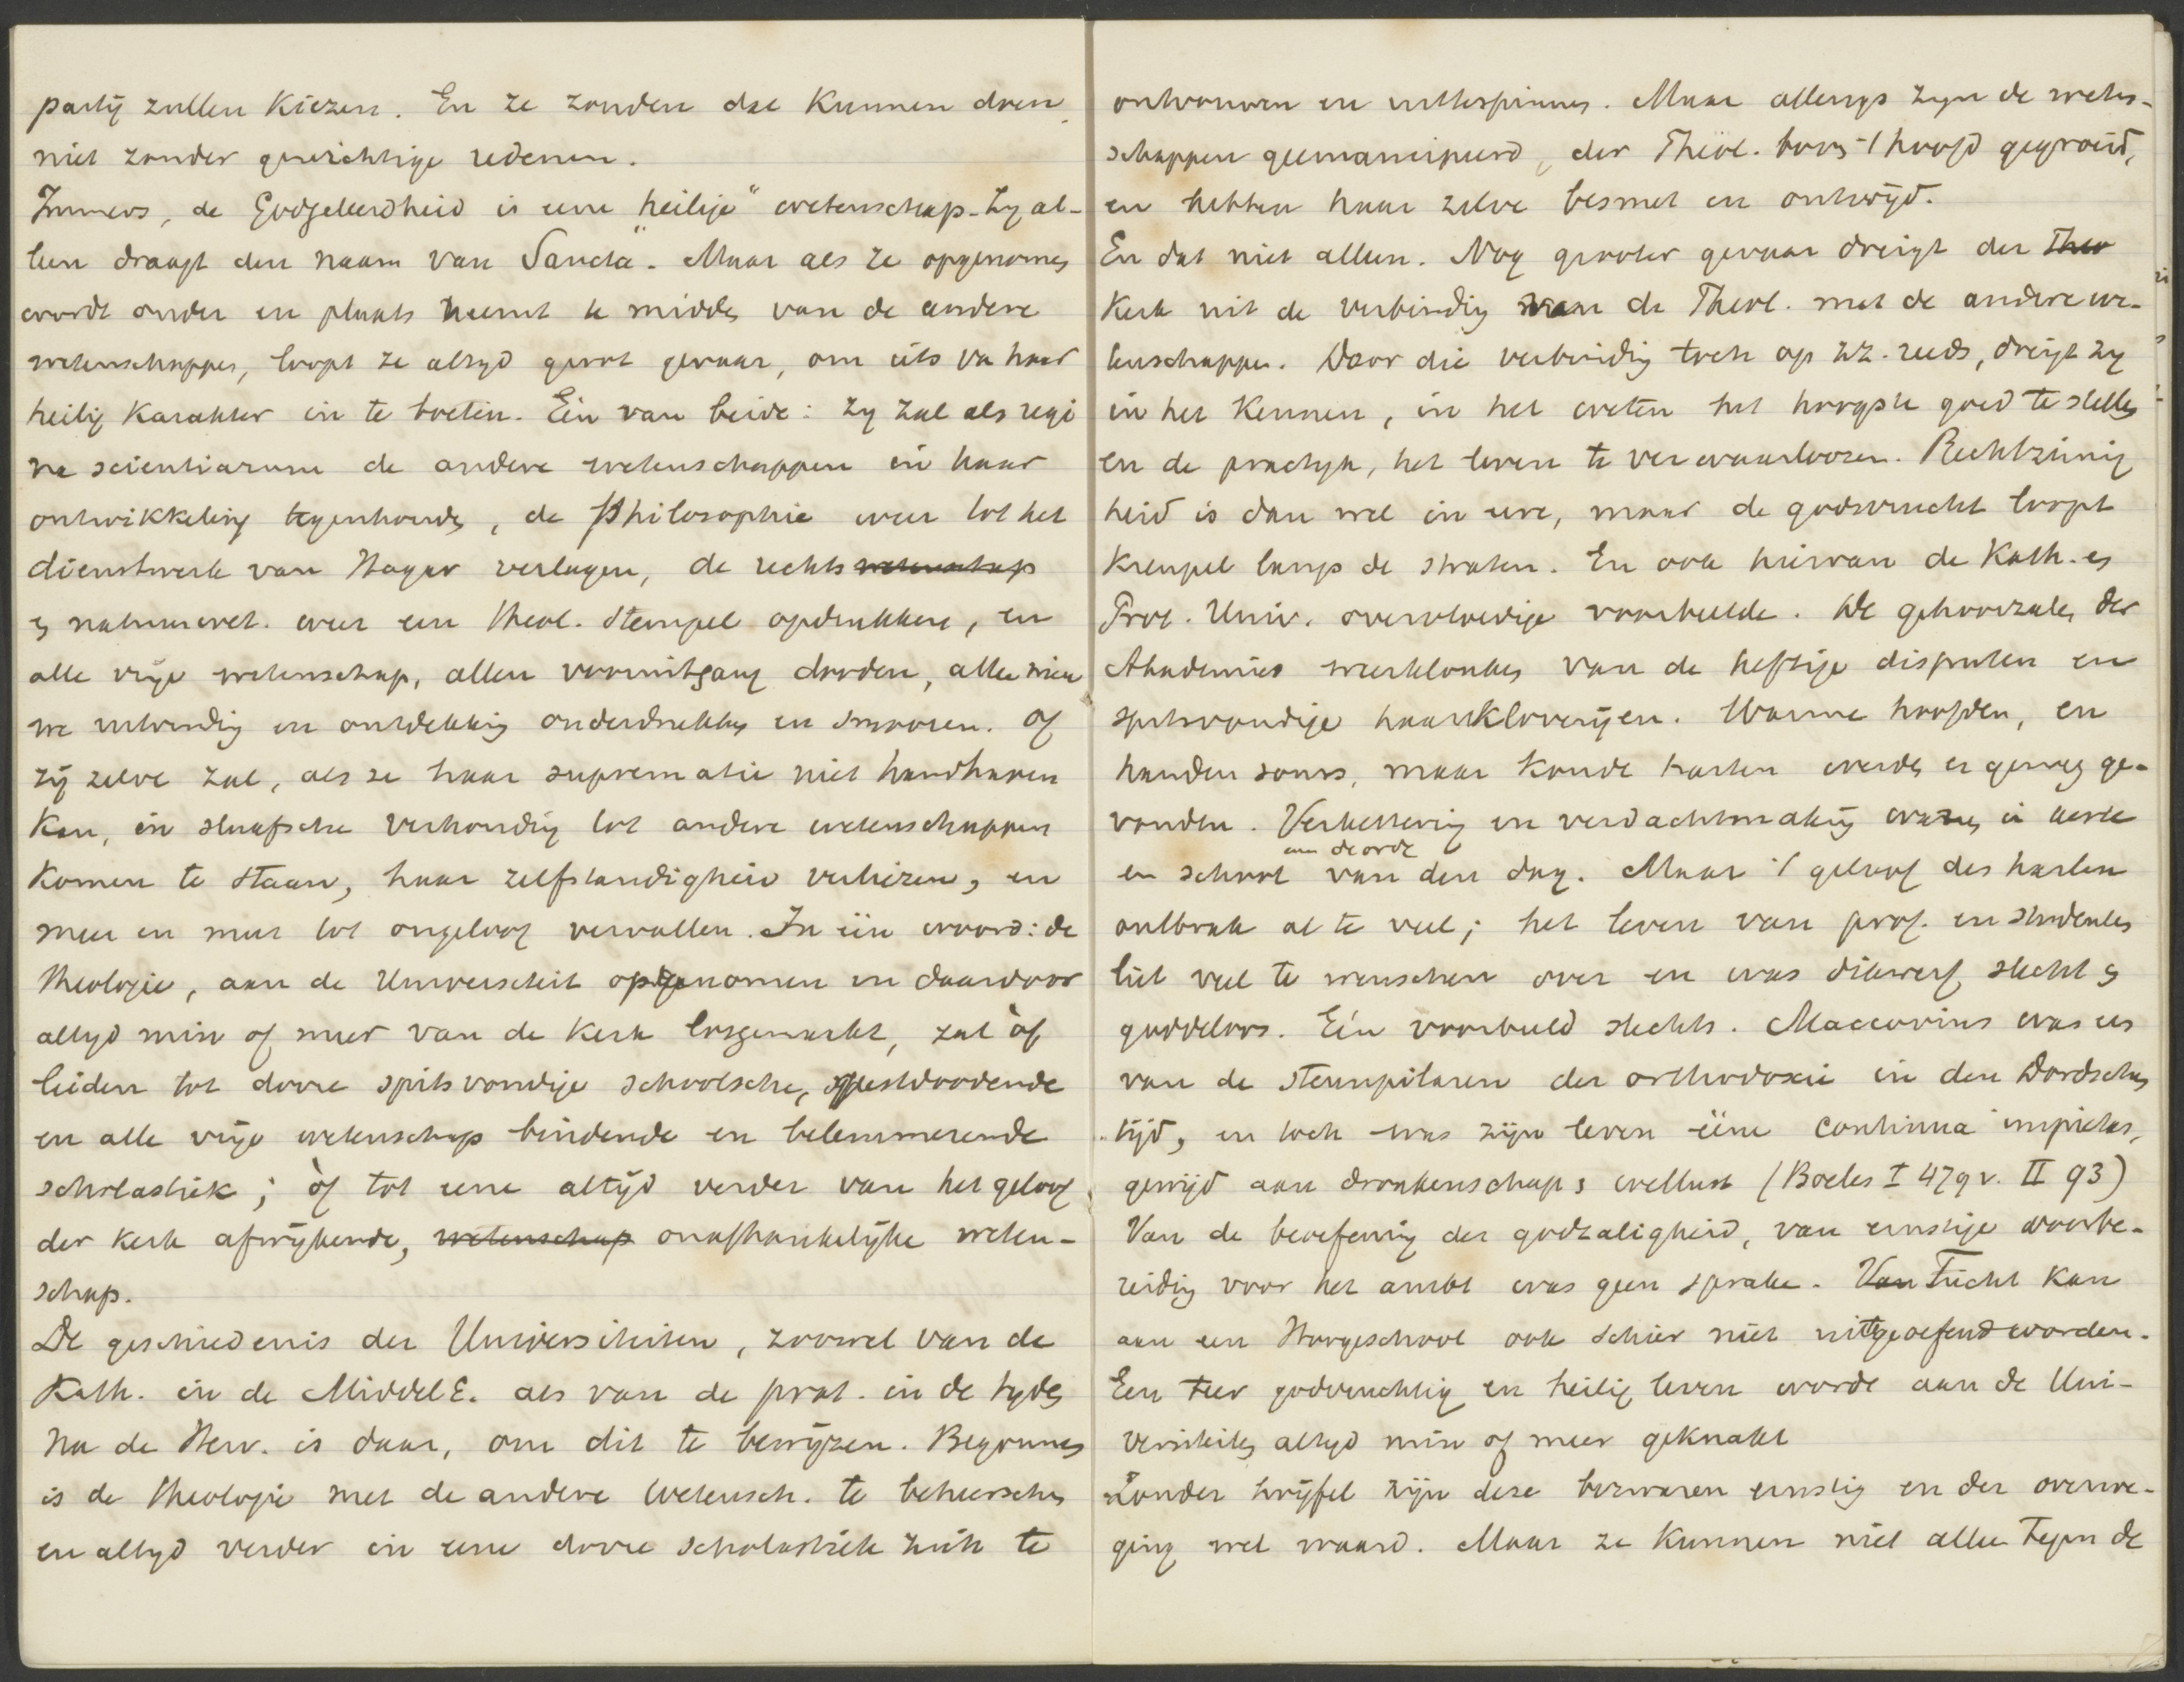 partij zullen Kiezen. En ze zouden dat Kunnen doen,
niet zonder gewichtige redenen.
Immers, de Godgeleerdheid is eene "heilige" wetenschap. Zy al-
leen draagt den naam van "Sancta". Maar als ze opgenomen
wordt onder en plaats neemt te midden van de andere
wetenschappen, loopt ze altyd groot gevaar, om iets va haar
heilig Karakter in te boeten. Eén van beide: zy zal als regi
na scientiarum de andere wetenschappen in haar
ontwikkeling tegenhouden, de Philosophie weer tot het
dienstwerk van Hagar verlagen, de rechts wetenschap
en natuurwet. weer een theol. stempel opdrukken, en
alle vrije wetenschap, allen vooruitgang dooden, alle nieu
we uitvinding en ontdekking onderdrukken en smooren. Of
zij zelve zal, als ze haar suprematie niet handhaven
Kan, in slaafsche verhouding tot andere wetenschappen
Komen te staan, haar zelfstandigheid verliezen, en
meer en meer tot ongeloof vervallen. In één woord: de
theologie, aan de Universiteit opgenomen en daardoor
altyd min of meer van de Kerk losgemaakt, zal òf
leiden tot dorre spitsvondige schoolsche, geestdoodende
en alle vrije wetenschap bindende en belemmerende
scholastiek; òf tot eene altijd verder van het geloof
der Kerk afwijkende, wetenschap onafhankelijke weten-
schap.
De geschiedenis der Universiteiten, zoowel van de
Kath. in de MiddelE. als van de prot. in de tyden
na de Herv. is daar, om dit te bewijzen. Begonnen
is de theologie met de andere Wetensch. te beheerschen
en altyd verder in eene dorre scholastiek zich te
ontvouwen en uittespinnen. Maar allengs zyn de weten-
schappen geemancipeerd, der Theol. boven 't hoofd gegroeid,
en hebben haar zelve besmet en ontwijd.
En dat niet alleen. Nog grooter gevaar dreigt der Theo
Kerk uit de verbinding van de Theol. met de andere we-
tenschappen. Door die verbinding toch op zz. reeds, dreigt zy
in het Kennen, in het weten het hoogste goed te stellen
en de practyk, het leven te verwaarloozen. Rechtzinnig
heid is dan wel in eere, maar de godsvrucht loopt
Kreupel langs de straten. En ook hiervan de Kath. en
Prot. Univ. overvloedige voorbeelden. De gehoorzalen der
Akademies weerklonken van de heftige disputen en
spitsvondige haarkloverijen. Warme hoofden, en
handen soms, maar Koude harten werden er genoeg ge-
vonden. Verkettering en verdachtmaking waren in kerk
en school aan de orde van den dag. Maar 't geloof des harten
ontbrak al te veel; het leven van prof. en studenten
liet veel te wenschen over en was dikwerf slecht en
goddeloos. Eén voorbeeld slechts. Maccovius was een
van de steunpilaren der orthodoxie in den Dordschen
tijd, en toch was zijn leven ééne continua impietas,
gewijd aan dronkenschap en wellust (Boeles I 47 gv. II 93)
Van de beoefening der godzaligheid, van ernstige voorbe-
reiding voor het ambt was geen sprake. Van Tucht Kan
aan een Hoogeschool ook schier niet uitgeoefend worden.
Een teer godvruchtig en heilig leven wordt aan de Uni-
versiteiten altyd min of meer geknakt
Zonder twijfel zijn deze bezwaren ernstig en der overwe-
ging wel waard. Maar ze Kunnen niet allen tegen de